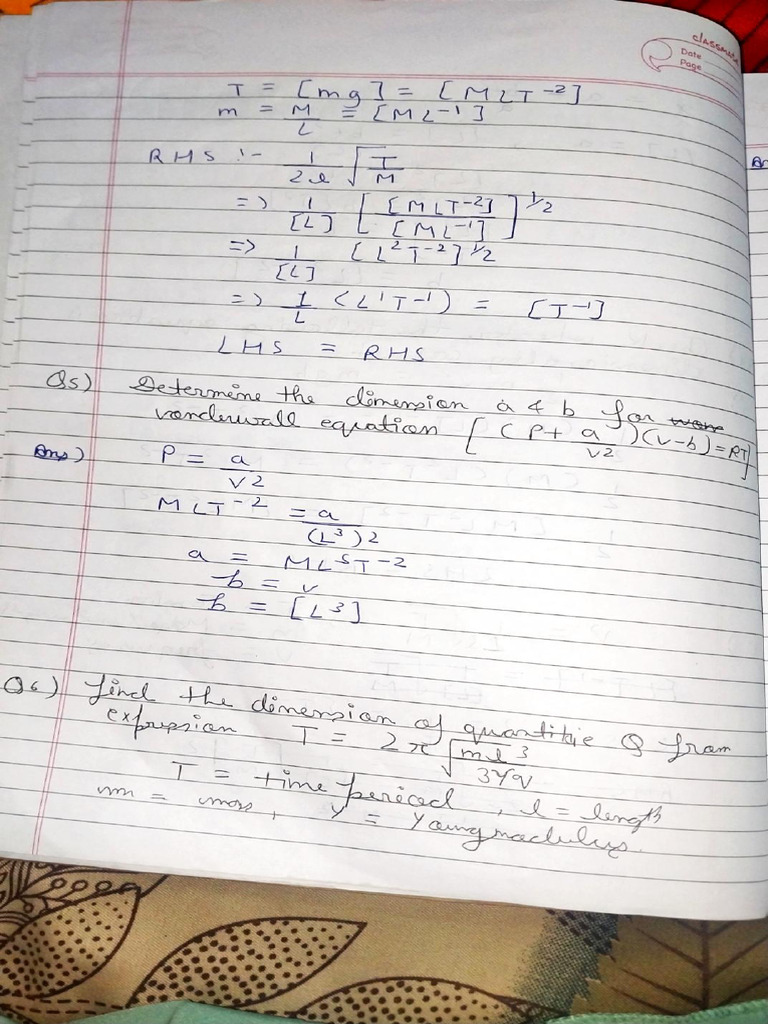 classmate
Date
Page
T = [mg] = [MLT⁻²]
m = M/L = [ML⁻¹]
RHS :- 1/2l √T/M
=> 1/[L] [[MLT⁻²]/[ML⁻¹]]^1/2
=> 1/[L] [L²T⁻²]^1/2
=> 1/L (L¹T⁻¹) = [T⁻¹]
LHS = RHS
Q5) Determine the dimension a & b for
vanderwall equation [(P + a/v2)(v-b) = RT]
Ans) P = a/v2
MLT⁻² = a/(L³)2
a = ML⁵T⁻²
b = v
b = [L³]
Q6) find the dimension of quantitie Q from
expression T = 2π √ml³/3Yq
T = time period, l = length
m = mass, Y = Young modulus